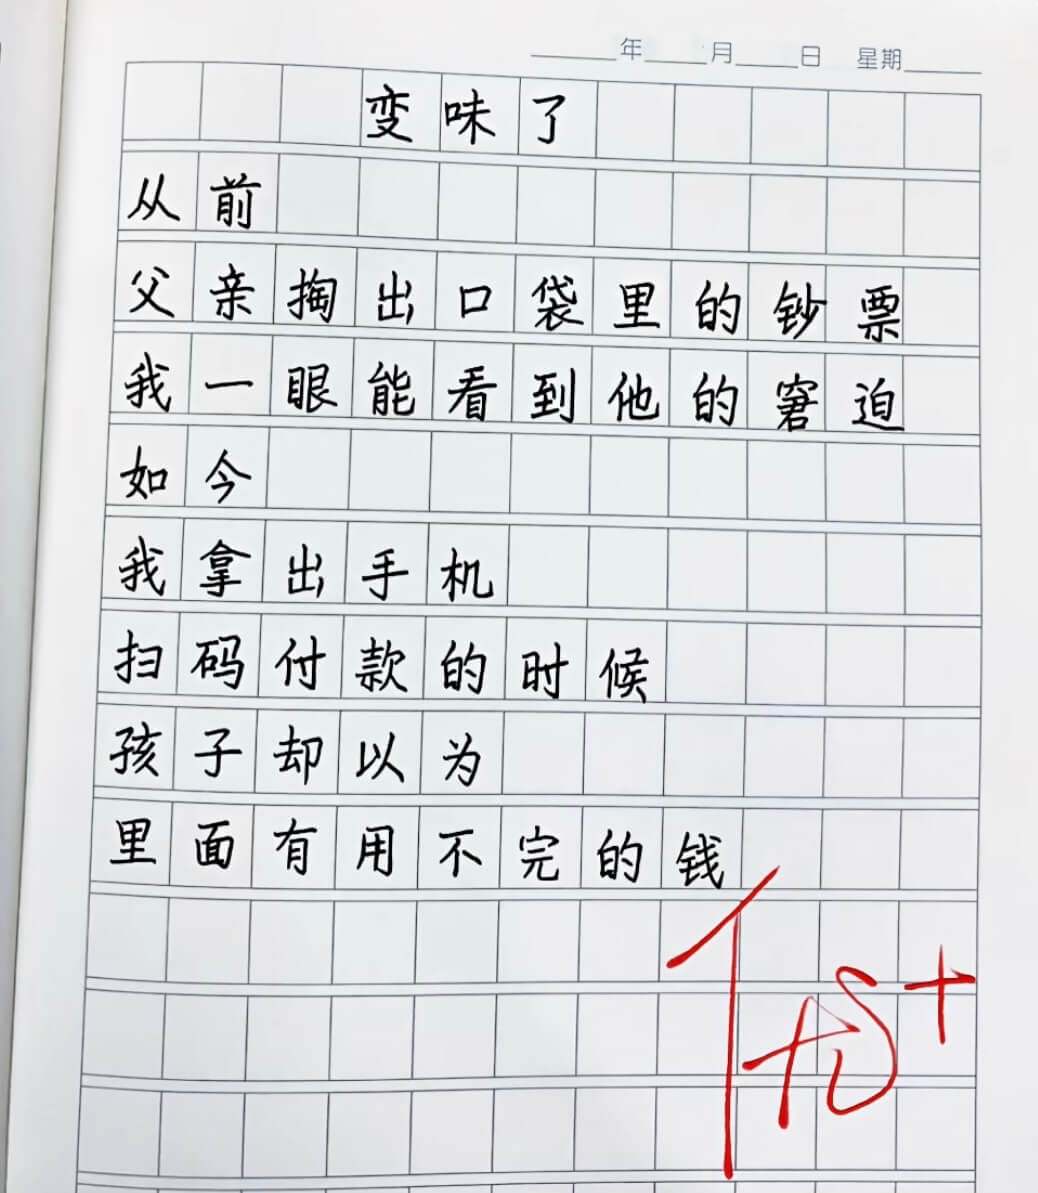 年 月 日 星期
变味了
从前
父亲掏出口袋里的钞票
我一眼能看到他的窘迫
如今
我拿出手机
扫码付款的时候
孩子却以为
里面有用不完的钱